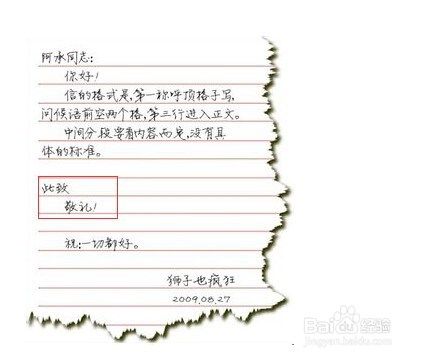 阿承同志：
你好！
信的格式是，第一称呼顶格子写，
问候话前空两个格，第三行进入正文。
中间分段要看内容而定，没有具
体的标准。
此致
敬礼！
祝：一切都好。
狮子也疯狂
2009.08.27
Baidu 经验
jingyan.baidu.com